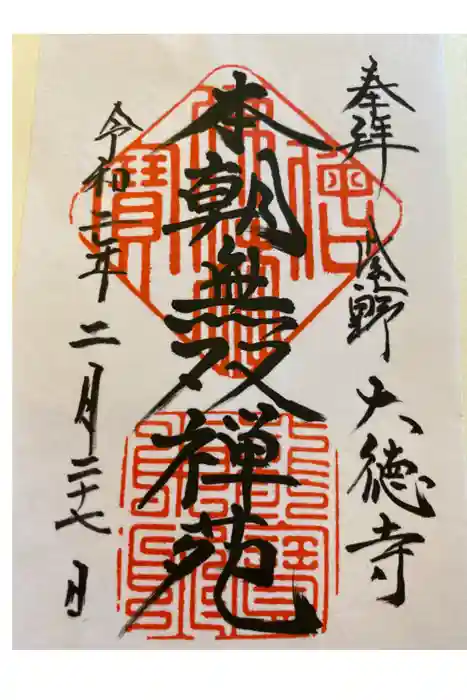 奉拝 紫野 大徳寺
本朝無双禅苑
令和二年 二月二十七日